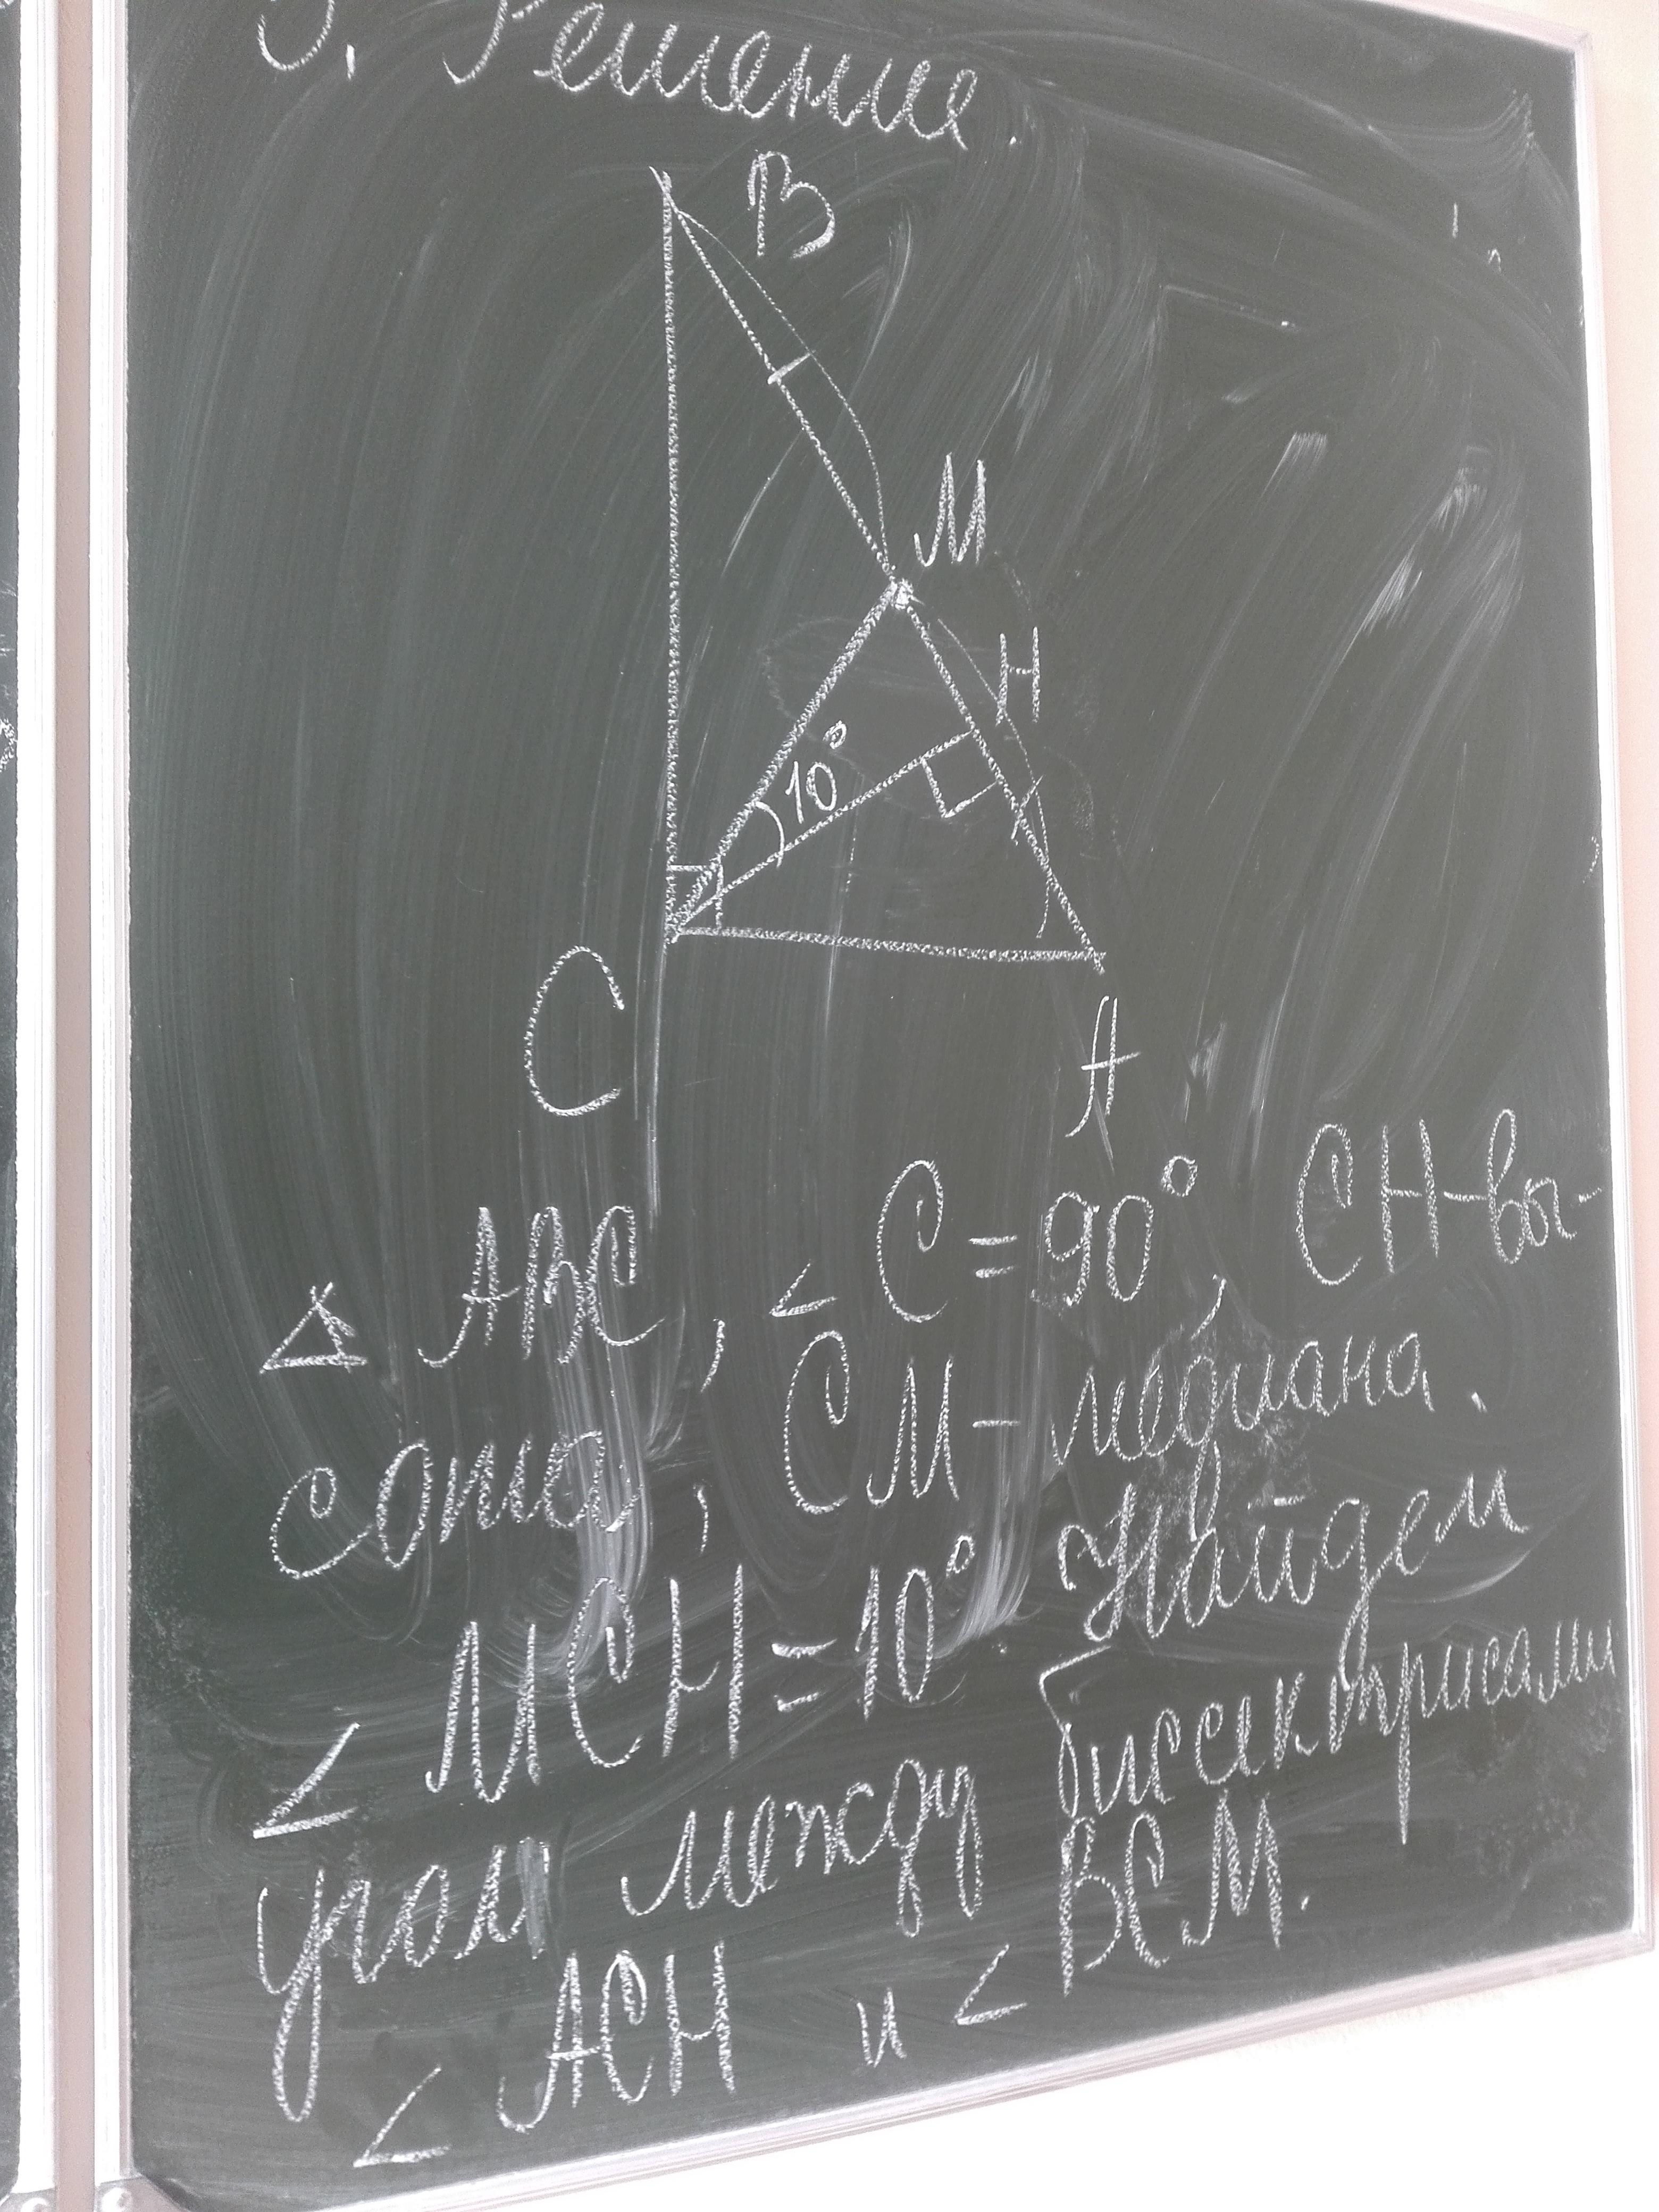 3. Решение.
B
M
H
10°
C
A
△ ABC, < C = 90°, CH - вы-
сота, CM - медиана.
< MCH = 10° Найдем
угол между биссектрисами
< ACH и < BCM.